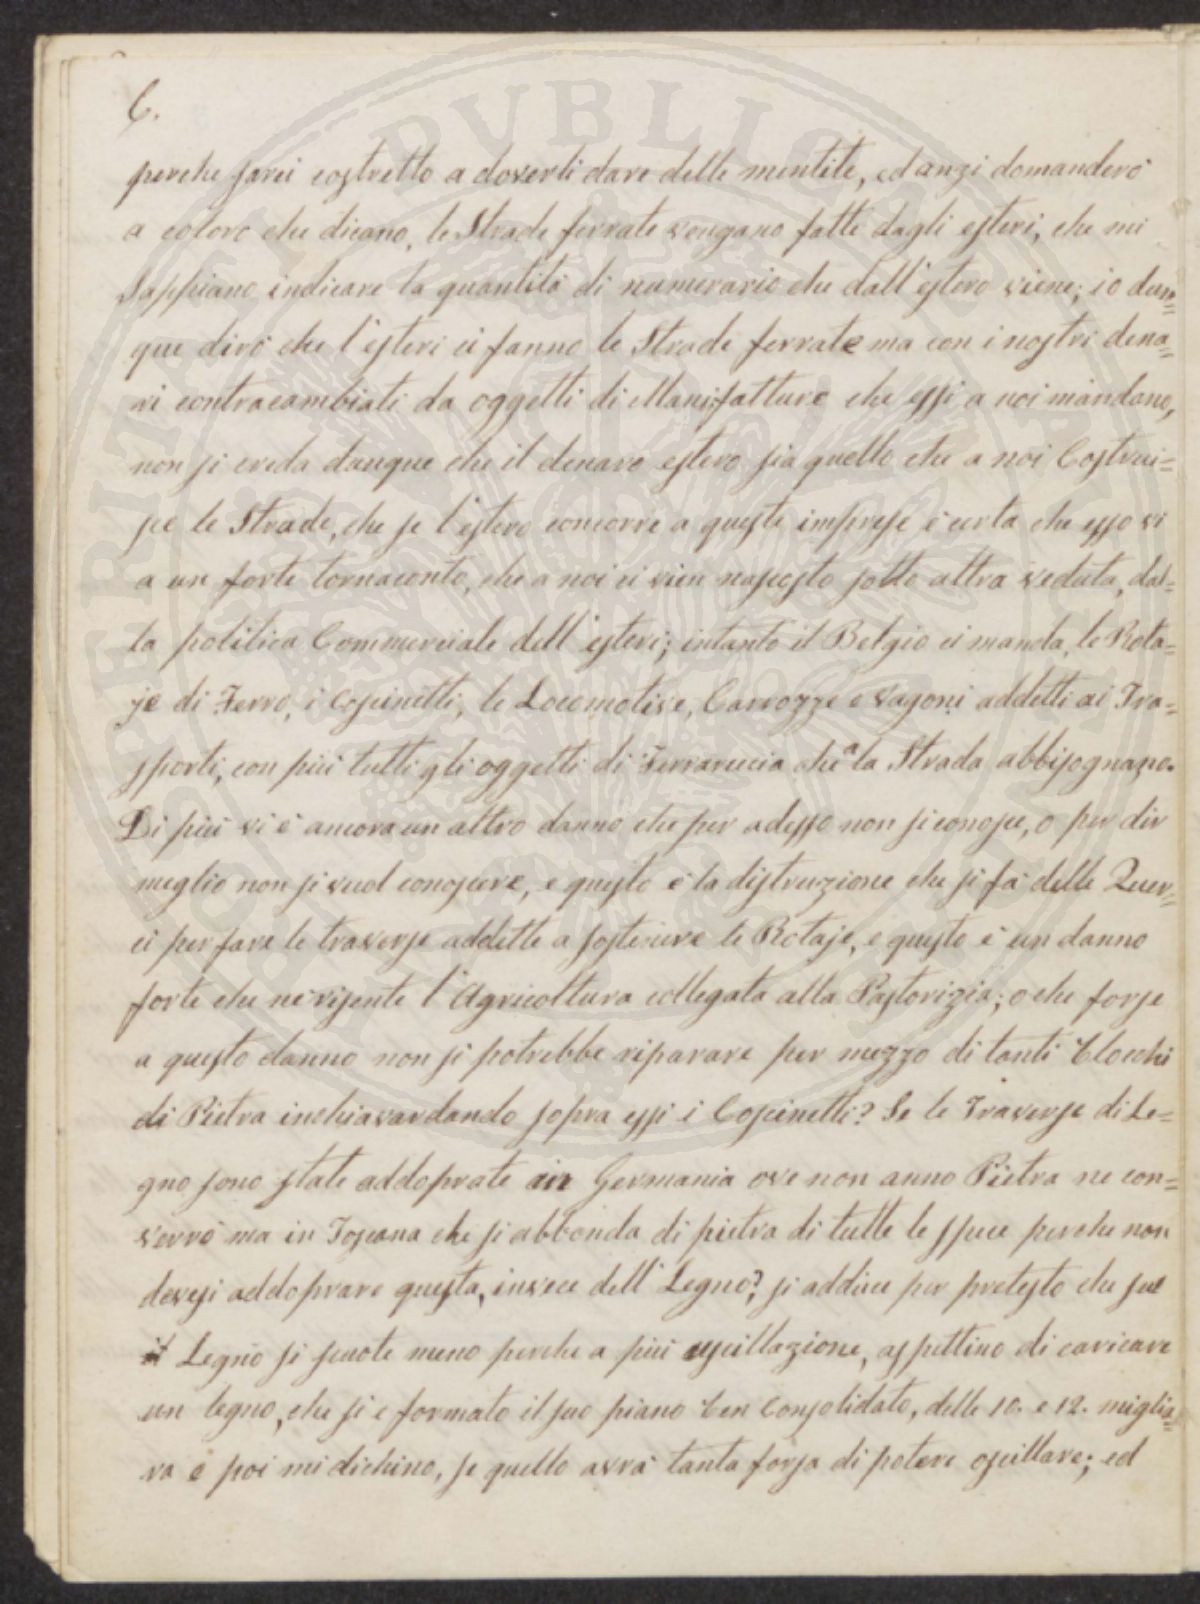 6.
perche sarei costretto a doverli dare delle mentite, ed anzi domanderò
a coloro che dicano, le Strade ferrate vengano fatte dagli esteri, che mi
Sappiano indicare la quantità di numerario che dall'estero viene; io dun=
que dirò che l'esteri ci fanno le Strade ferrate ma con i nostri dena=
ri contracambiati da oggetti di Manifatture che essi a noi mandano,
non si creda dunque che il denaro estero sia quello che a noi Costrui=
sce le Strade, che se l'estero concorre a queste imprese è certa che esso vi
a un forte tornaconto, che a noi ci vien nascosto sotto altra veduta, dal=
la politica Commerciale dell'esteri; intanto il Belgio ci manda, le Rota=
je di Ferro, i Coscinetti, le Locomotive, Carrozze e Vagoni addetti ai Tra=
sporti, con più tutti gli oggetti di Ferrareccia che a la Strada abbisognano.
Di più vi è ancora un altro danno che per adesso non si conosce, o per dir
meglio non si vuol conoscere, e questo è la distruzione che si fà delle Quer=
ci per fare le traverse addette a sostenere le Rotaje, e questo è un danno
forte che ne risente l'Agricoltura collegata alla Pastorizia; o che forse
a questo danno non si potrebbe riparare per mezzo di tanti blocchi
di Pietra inchiavardando sopra essi i Coscinetti? Se le Traverse di Le=
gno sono state addoprate in Germania ove non anno Pietra ne con=
verrò ma in Toscana che si abbonda di pietra di tutte le specie perche non
devesi addoprare questa, invece dell'Legno? si adduce per pretesto che sul
il Legno si scuote meno perche a più oscillazione, aspettino di caricare
un legno, che si è formato il suo piano ben Consolidato, delle 10. e 12. miglia=
ra e poi mi dichino, se quello avrà tanta forza di potere oscillare; ed
PVBLICA